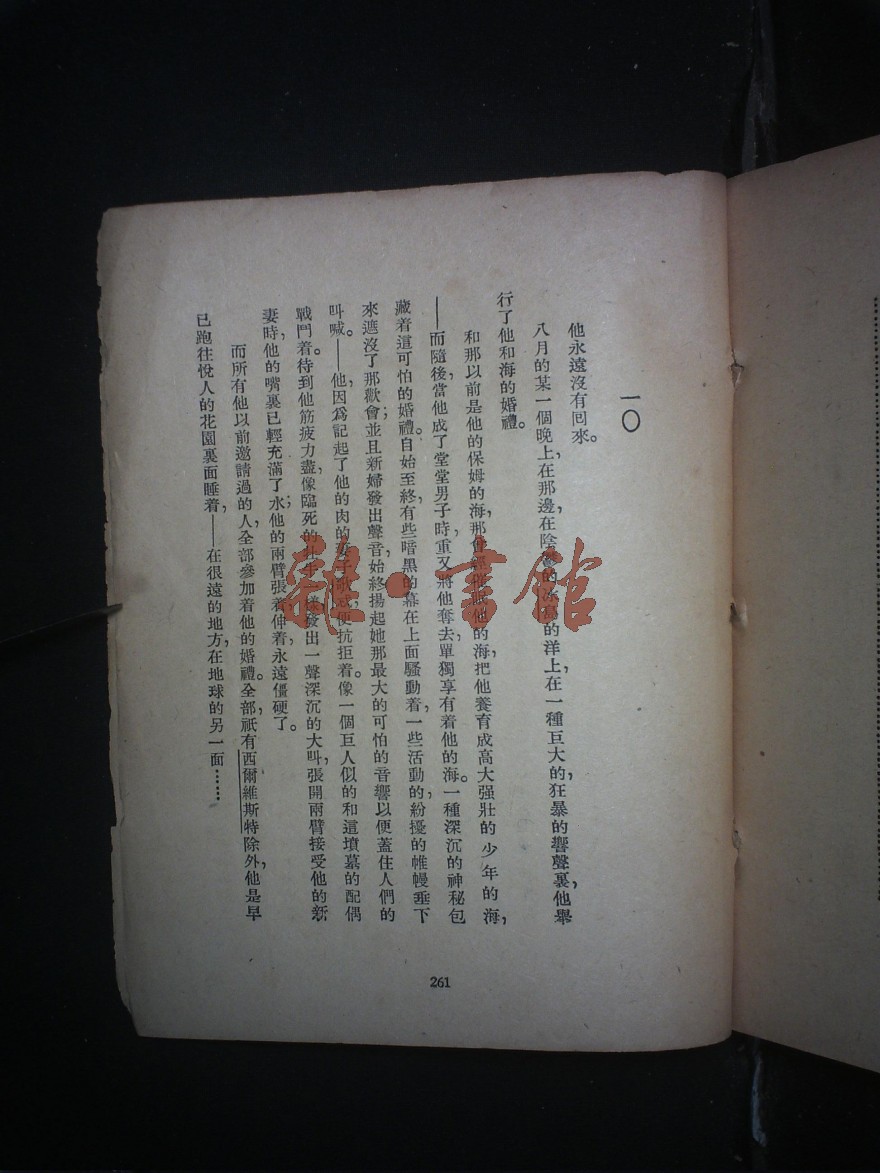 一〇
他永遠沒有回來。
八月的某一個晚上，在那邊在陰鬱的冰島的洋上，在一種巨大的，狂暴的響聲裏，他舉
行了他和海的婚禮。
和那以前是他的保姆的海，那曾經催眠他的海，把他養育成高大强壯的少年的海，
——而隨後，當他成了堂堂男子時，重又將他奪去，單獨享有着他的海。一種深沉的神秘包
藏着這可怕的婚禮。自始至終，有些暗黑的幕在上面騷動着，一些活動的，紛擾的帷幔垂下
來遮沒了那歡會；並且新婦發出聲音，始終揚起她那最大的可怕的音響以便蓋住人們的
叫喊。——他，因爲記起了他的肉的妻子歌忒，便抗拒着。像一個巨人似的和這墳墓的配偶
戰鬥着。待到他筋疲力盡，像臨死的牡牛一樣發出一聲深沉的大叫，張開兩臂接受他的新
妻時，他的嘴裏已輕充滿了水；他的兩臂張着，伸着，永遠僵硬了。
而所有他以前邀請過的人，全部參加着他的婚禮。全部，祇有西爾維斯特除外，他是早
已跑往悅人的花園裏面睡着，——在很遠的地方，在地球的另一面……
261
雜·書館